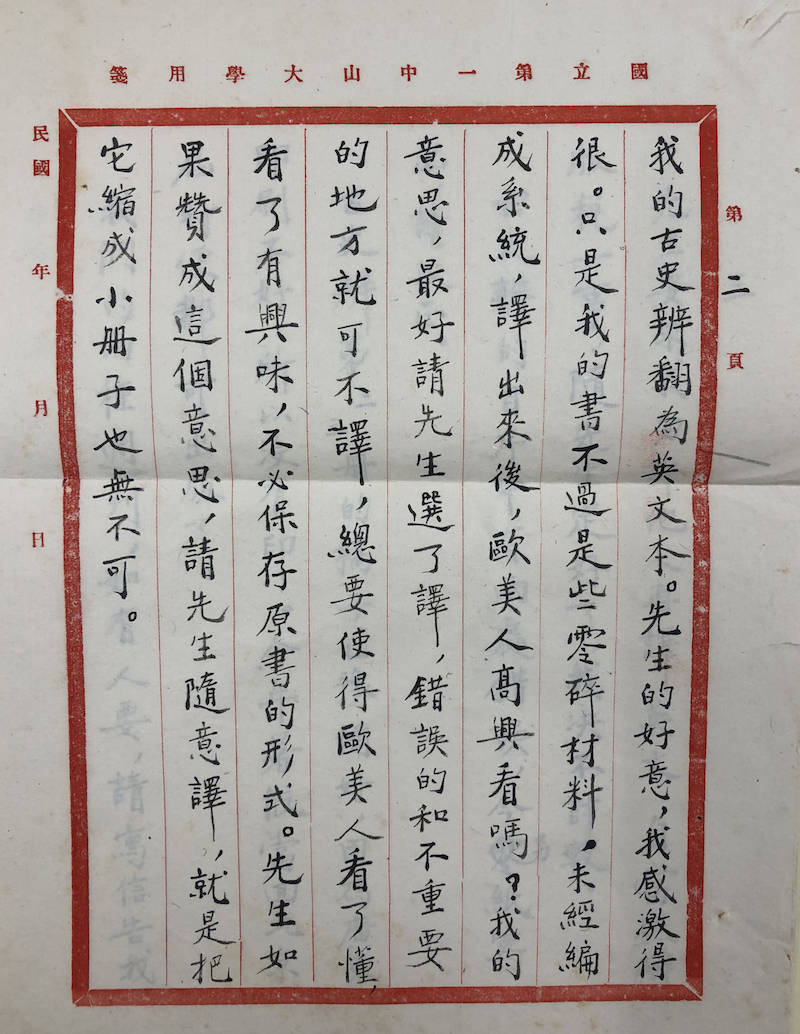 國立第一中山大學用箋
第二頁
我的古史辨翻為英文本。先生的好意，我感激得
很。只是我的書不過是些零碎材料，未經編
成系統，譯出來後，歐美人高興看嗎？我的
意思，最好請先生選了譯，錯誤的和不重要
的地方就可不譯，總要使得歐美人看了懂，
看了有興味，不必保存原書的形式。先生如
果贊成這個意思，請先生隨意譯，就是把
它縮成小冊子也無不可。
民國 年 月 日